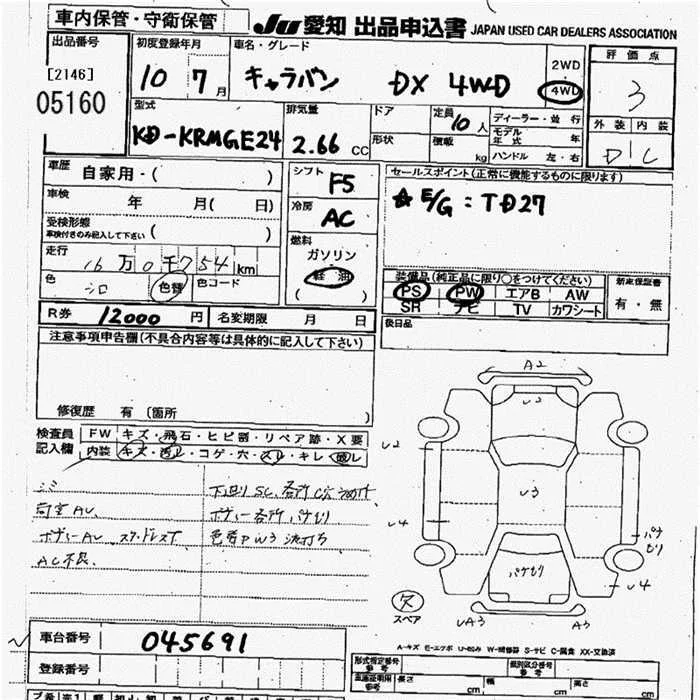 車内保管・守衛保管
JU 愛知 出品申込書 JAPAN USED CAR DEALERS ASSOCIATION
出品番号
[2146]
05160
初度登録年月
10 7月
車名・グレード
キャラバン DX 4WD
2WD
4WD
評価点
3
外装 内装
D C
型式
KD-KRMGE24
排気量
2.66 CC
ドア
形状
定員
10人
積載
kg
ディーラー・並行
モデル年式 年
ハンドル 左・右
車歴
自家用・( )
車検
年 月( 日)
受検形態
車検付きのみ記入して下さい ( )
走行
16万0千754km
色
シロ
色替
色コード
シフト
F5
冷房
AC
燃料
ガソリン
軽油
( )
セールスポイント(正常に機能するものに限ります)
☆ E/G:TD27
装備品(純正品に限り○をつけてください)
PS PW エアB AW
SR ナビ TV カワシート
新車保証書
有・無
後日品
R券 12000円
名変期限 月 日
注意事項申告欄(不具合内容等は具体的に記入して下さい)
修復歴 有 (箇所 )
検査員
記入欄
FW キズ・飛石・ヒビ割・リペア跡・X要
内装 キズ・汚レ・コゲ・穴・スレ・キレ・破レ
シミ
荷室AU
ボデーAU スタッドレス下
AC不良
下回りSC、各所C穴
ボデー各所パテもり
色替PW3 波打ち
A2
U2
U2
U3
U4
パテもり
パテもり
U4
UA3
A3
欠
スペア
車台番号 045691
登録番号
A-キズ E-エクボ U-凹み W-補修跡 S-サビ C-腐食 XX-交換済
形式指定番号
参考
類別区分番号
参考
車庫証明用
参考
長さ cm
幅 cm
高さ cm